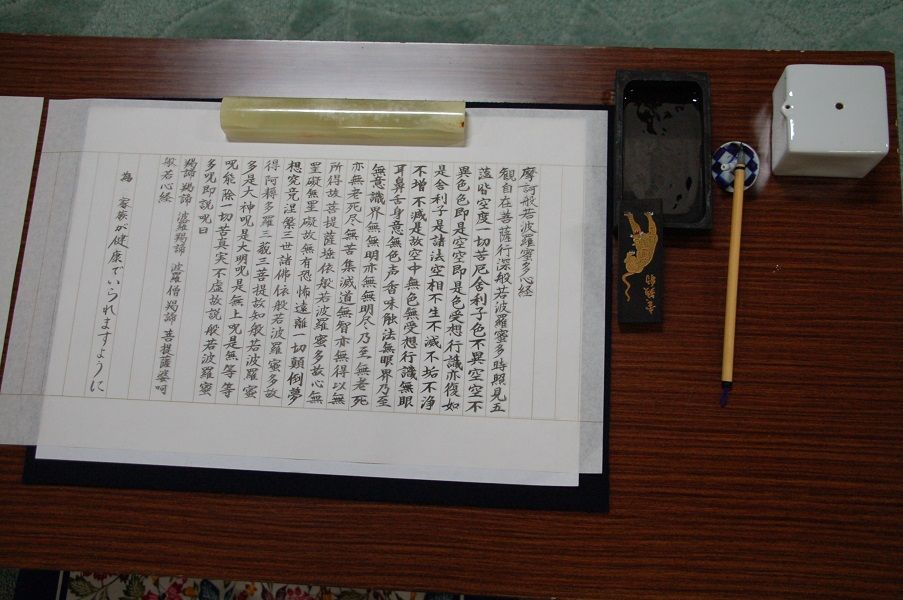 摩訶般若波羅蜜多心経
観自在菩薩行深般若波羅蜜多時照見五
蘊皆空度一切苦厄舎利子色不異空空不
異色色即是空空即是色受想行識亦復如
是舎利子是諸法空相不生不滅不垢不浄
不増不減是故空中無色無受想行識無眼
耳鼻舌身意無色声香味触法無眼界乃至
無意識界無無明亦無無明尽乃至無老死
亦無老死尽無苦集滅道無智亦無得以無
所得故菩提薩埵依般若波羅蜜多故心無
罣礙無罣礙故無有恐怖遠離一切顛倒夢
想究竟涅槃三世諸佛依般若波羅蜜多故
得阿耨多羅三藐三菩提故知般若波羅蜜
多是大神呪是大明呪是無上呪是無等等
呪能除一切苦真実不虚故説般若波羅蜜
多呪即説呪曰
羯諦 羯諦 波羅羯諦 波羅僧羯諦 菩提薩婆呵
般若心経
為 家族が健康でいられますように